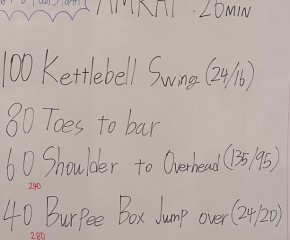 AMRAP : 26MIN
100 Kettlebell Swing (24/16)
80 Toes to bar
60 Shoulder to Overhead (135/95)
240
40 Burpee Box Jump over (24/20)
280